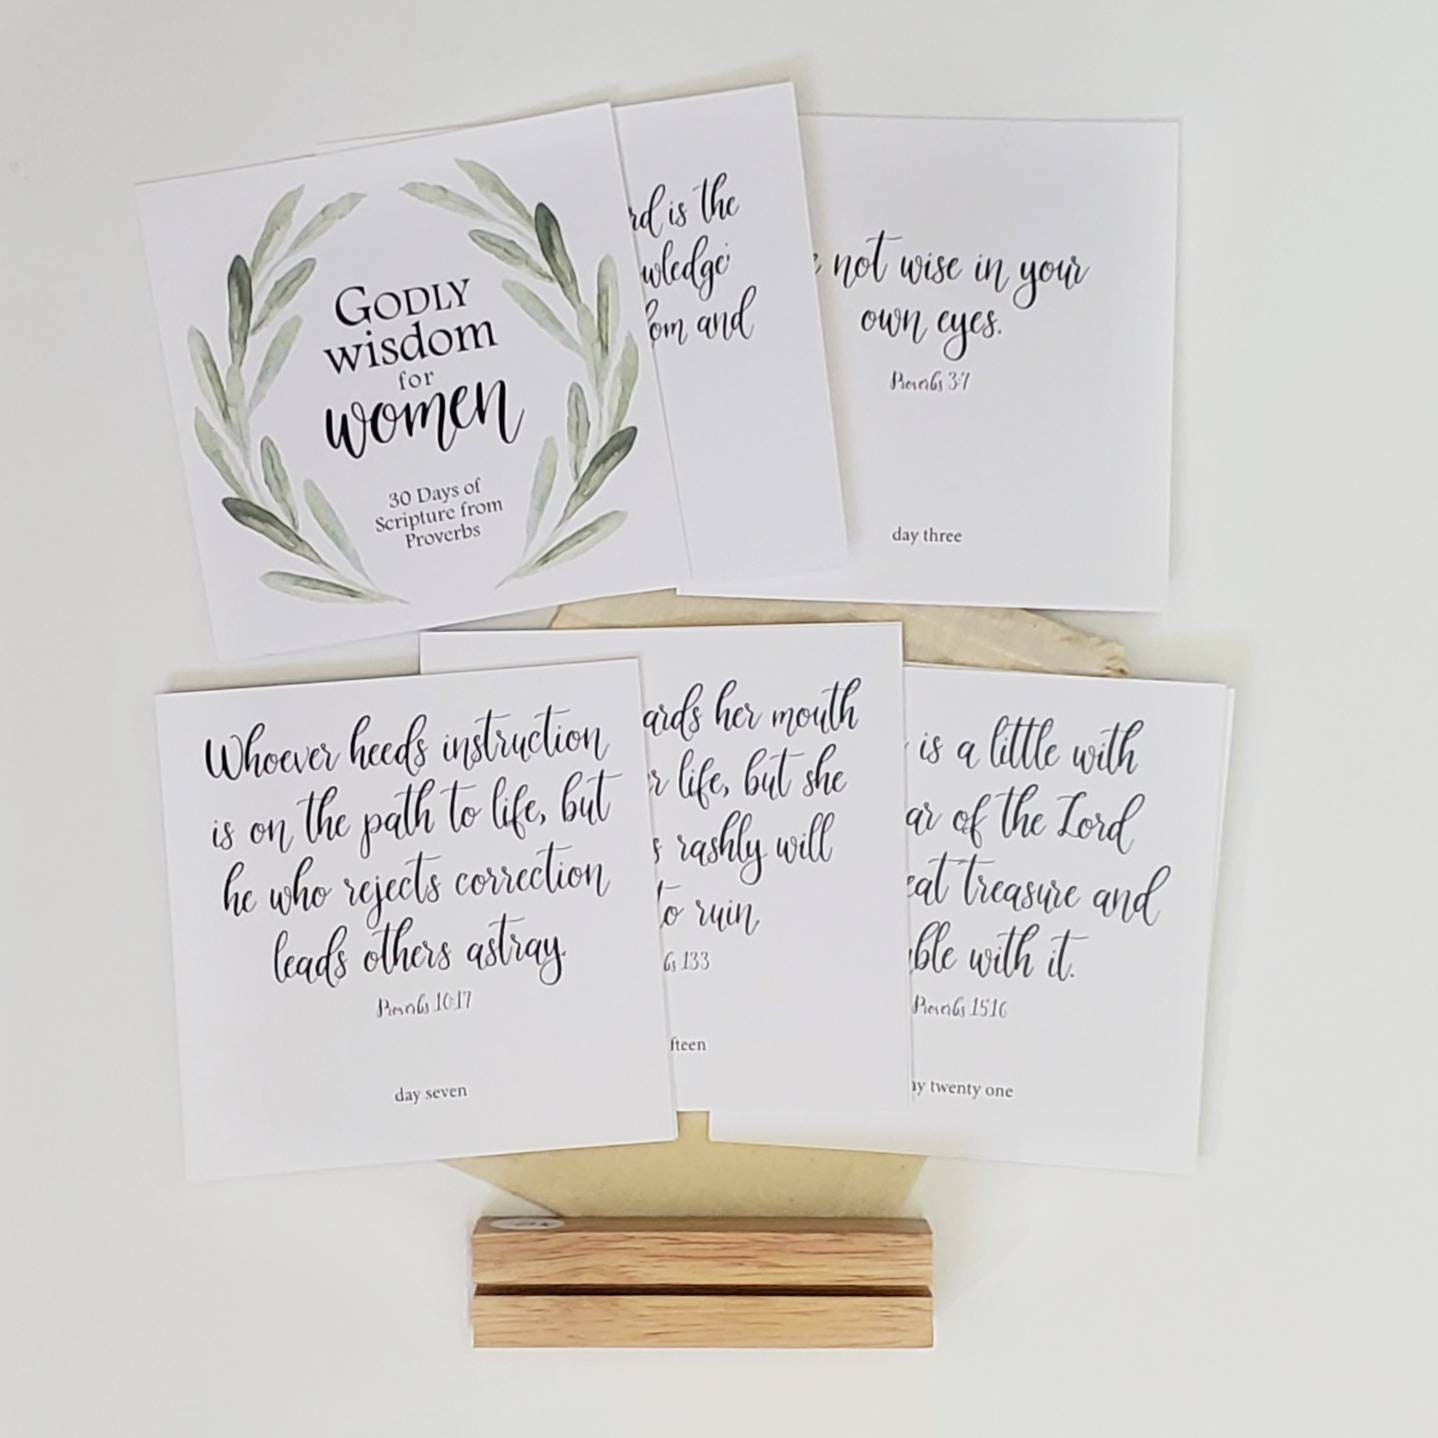 GODLY
wisdom
for
women
30 Days of
Scripture from
Proverbs
is the
and
not wise in your
own eyes.
Proverbs 3:7
day three
Whoever heeds instruction
is on the path to life, but
he who rejects correction
leads others astray.
Proverbs 10:17
day seven
her mouth
life, but she
rashly will
to ruin.
13:3
is a little with
of the Lord
treasure and
with it.
Proverbs 15:16
twenty one